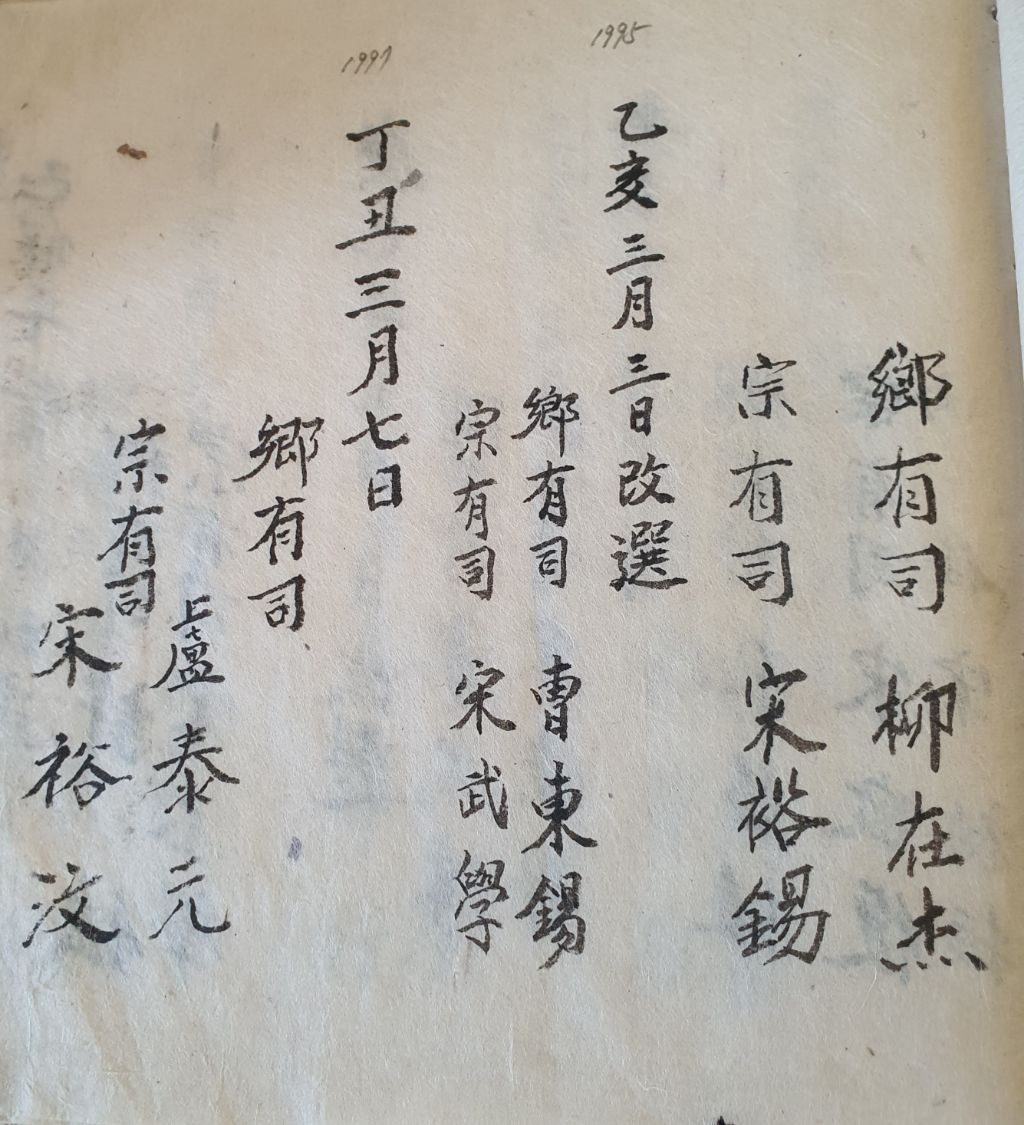 鄉有司 柳在杰
宗有司 宋裕錫
1995
乙亥三月三日改選
鄉有司 曺東錫
宗有司 宋武學
1997
丁丑三月七日
鄉有司
泰元
宗有司
宋裕汶